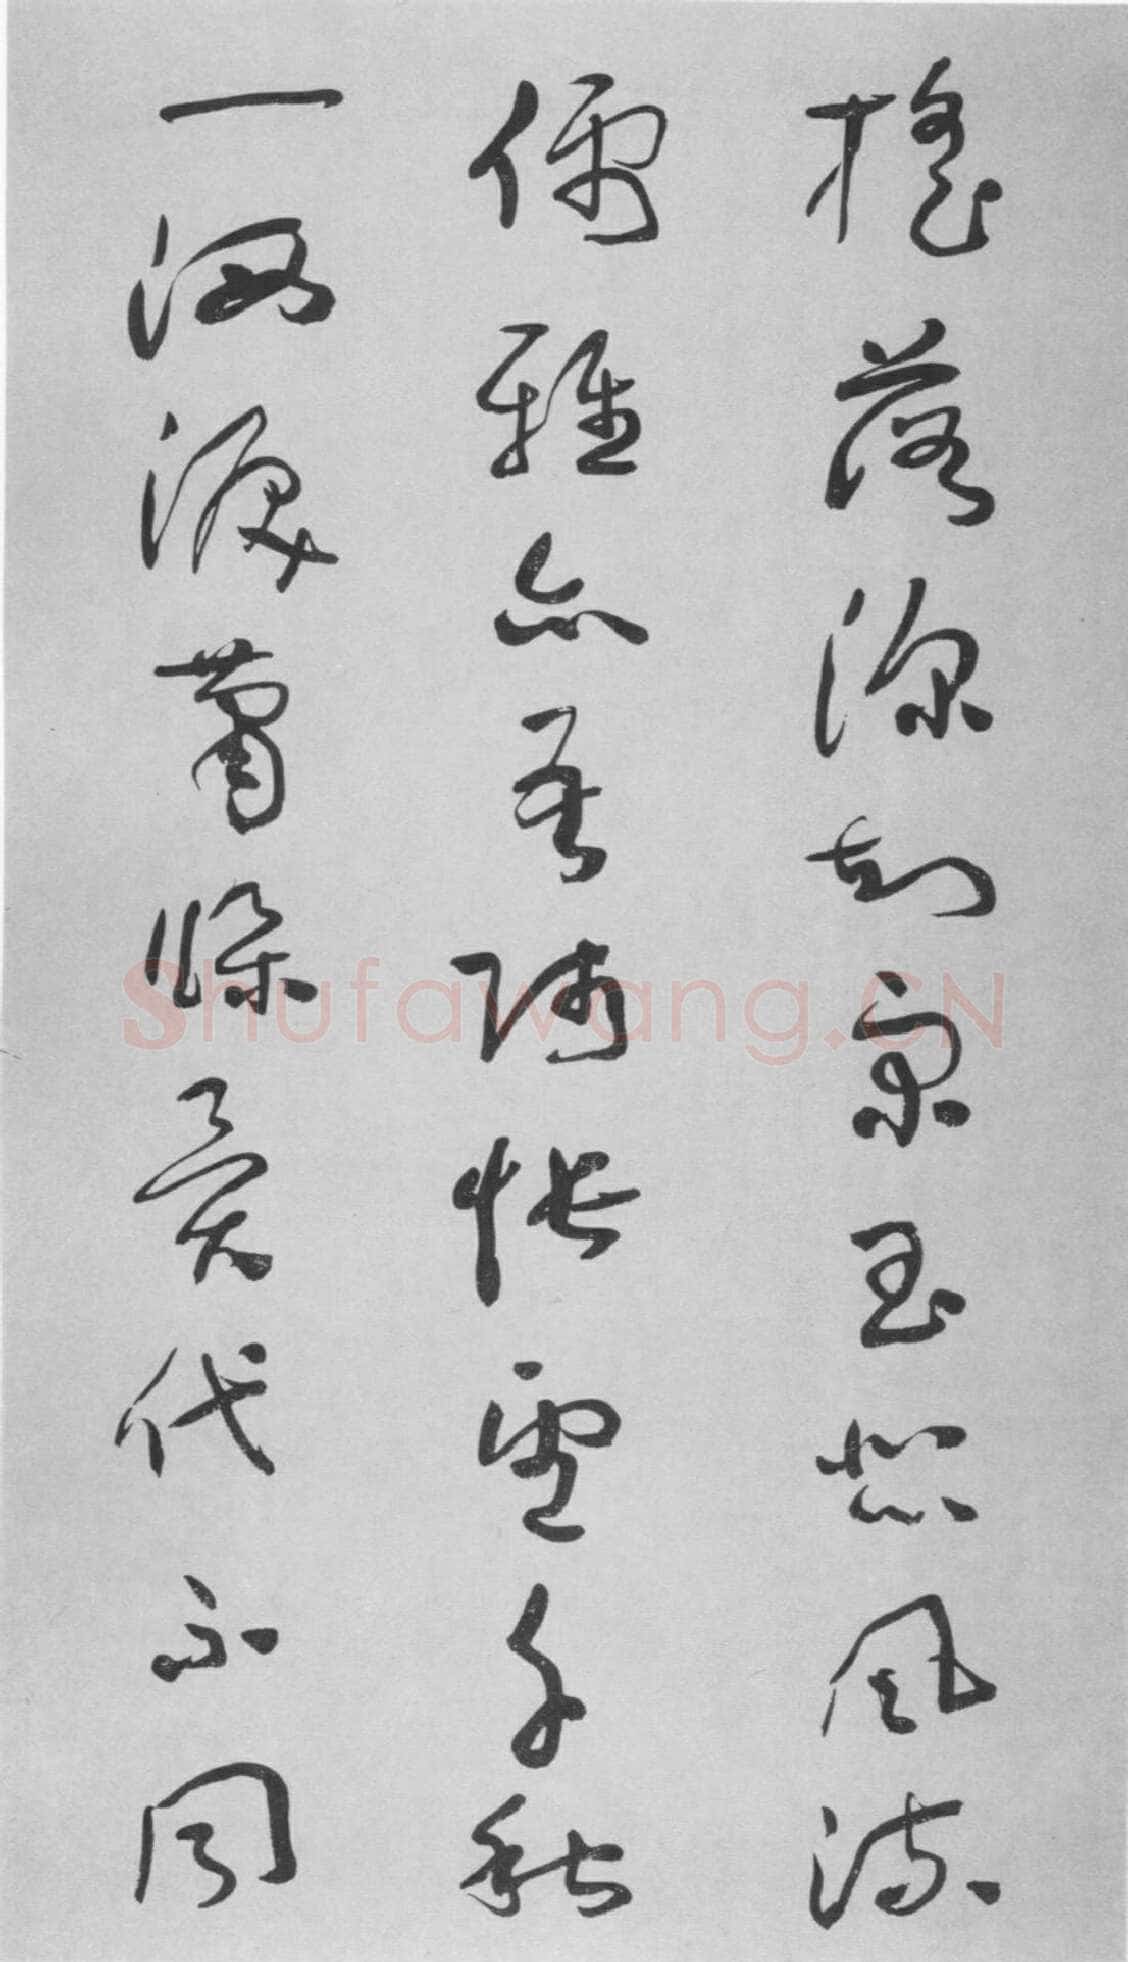 搖落深知宋玉悲風流
儒雅亦吾師悵望千秋
一洒淚蕭條異代不同
Shufawang.CN